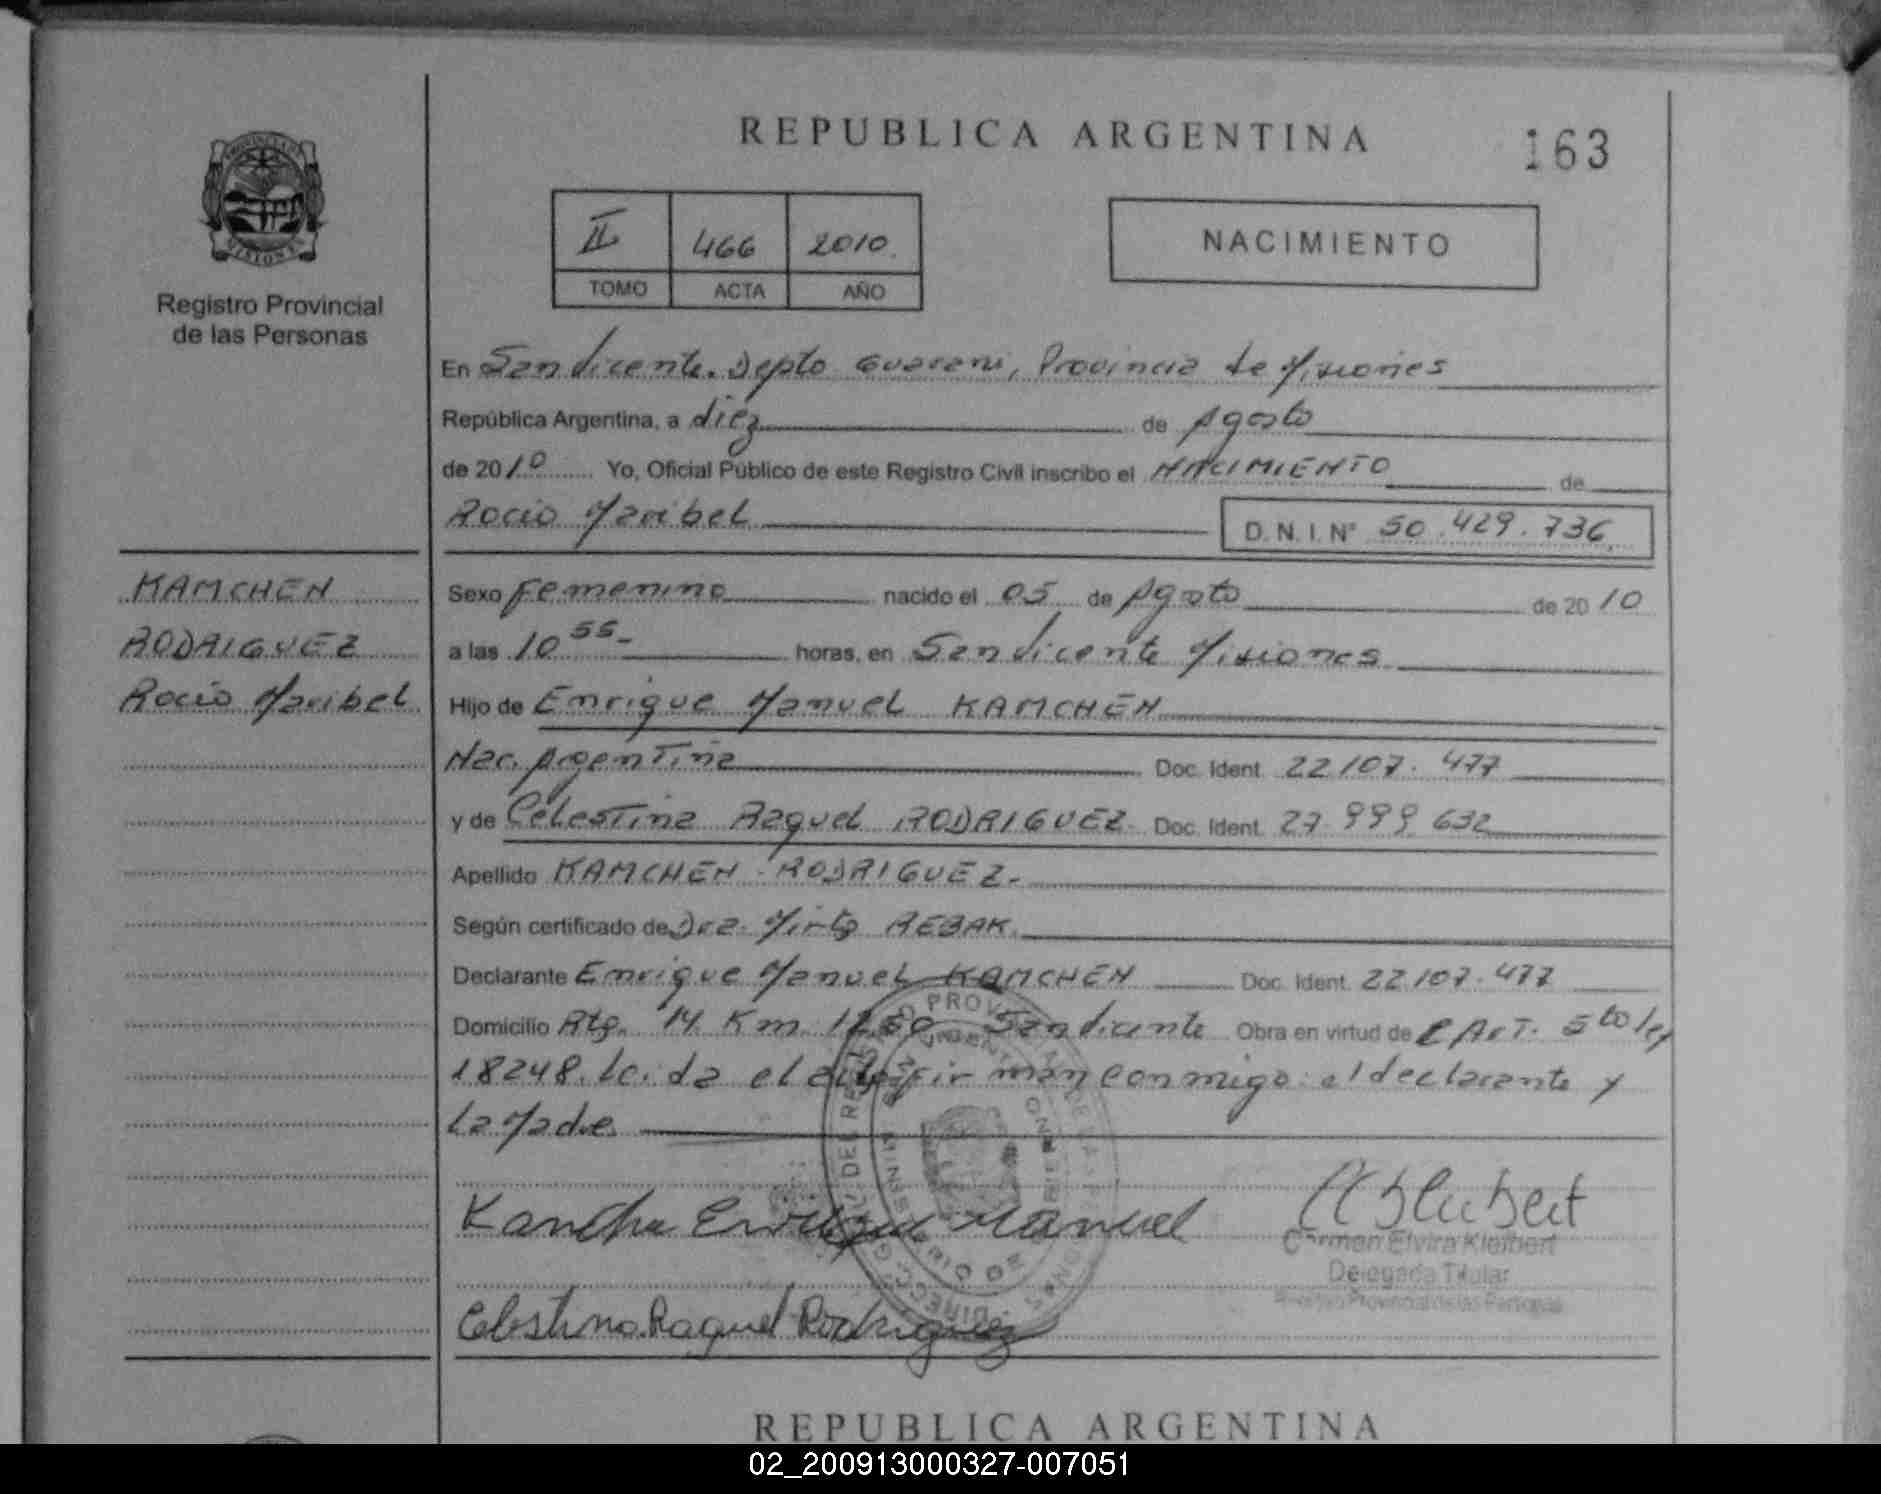 REPUBLICA ARGENTINA
163
PROVINCIA DE
MISIONES
Registro Provincial
de las Personas
II 466 2010
TOMO ACTA AÑO
NACIMIENTO
En San Vicente. Depto Guarani, Provincia de Misiones
República Argentina, a diez de Agosto
de 2010 Yo, Oficial Público de este Registro Civil inscribo el NACIMIENTO de
Rocio Maribel D. N. I. Nº 50.429.736
KAMCHEN
RODRIGUEZ
Rocio Maribel
Sexo Femenino nacido el 05 de Agosto de 2010
a las 10 55- horas, en San Vicente Misiones
Hijo de Enrique Manuel KAMCHEN
Nac. Argentina Doc. Ident. 22.107.477
y de Celestina Raquel RODRIGUEZ Doc. Ident. 27.999.632
Apellido KAMCHEN - RODRIGUEZ.
Según certificado de Dra. Mirta REBAK.
Declarante Enrique Manuel KAMCHEN Doc. Ident. 22.107.477
Domicilio Rta. 14 Km 1250 San Vicente Obra en virtud de Art. 5to ley
18248. Leida el acta firman conmigo: el declarante y
La Madre
Enrique Manuel
Carmen Elvira Kleibert
Delegada Titular
Registro Provincial de las Personas
Celestina Raquel Rodriguez
REPUBLICA ARGENTINA
02_200913000327-007051